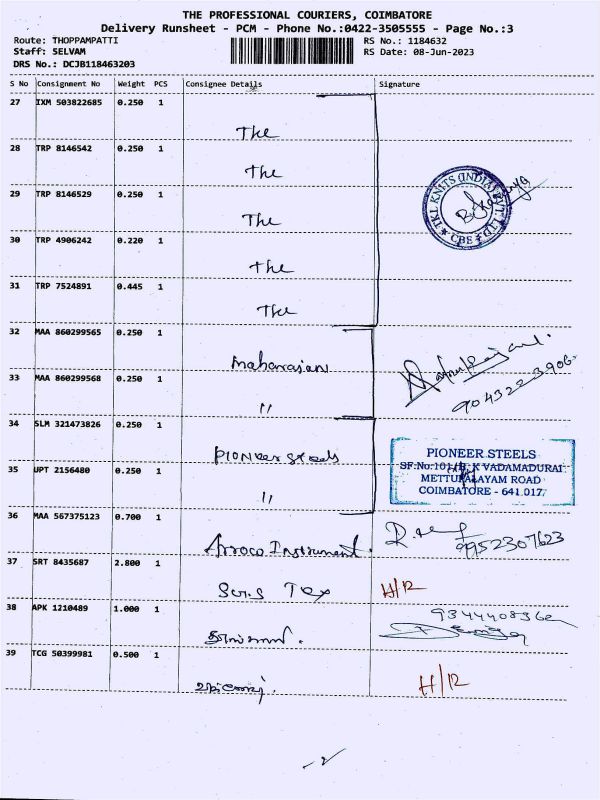 THE PROFESSIONAL COURIERS, COIMBATORE
Delivery Runsheet - PCM - Phone No.:0422-3505555 - Page No.:3
Route: THOPPAMPATTI
RS No.: 1184632
Staff: SELVAM
RS Date: 08-Jun-2023
DRS No.: DCJB118463203
S No Consignment No Weight PCS Consignee Details Signature
27 IXM 503822685 0.250 1
The
28 TRP 8146542 0.250 1
The
29 TRP 8146529 0.250 1
The
TKL KNITS (INDIA) PVT LTD
CBE
30 TRP 4906242 0.220 1
The
31 TRP 7524891 0.445 1
The
32 MAA 860299565 0.250 1
Maharajan
33 MAA 860299568 0.250 1
"
904322 3906
34 SLM 321473826 0.250 1
Pioneer steels
PIONEER STEELS
SF.No:101/ K VADAMADURAI
METTUPALAYAM ROAD
COIMBATORE - 641 017.
35 UPT 2156480 0.250 1
"
36 MAA 567375123 0.700 1
Instrument
9952307623
37 SRT 8435687 2.800 1
Tex
H/R
38 APK 1210489 1.000 1
39 TCG 50399981 0.500 1
H/R